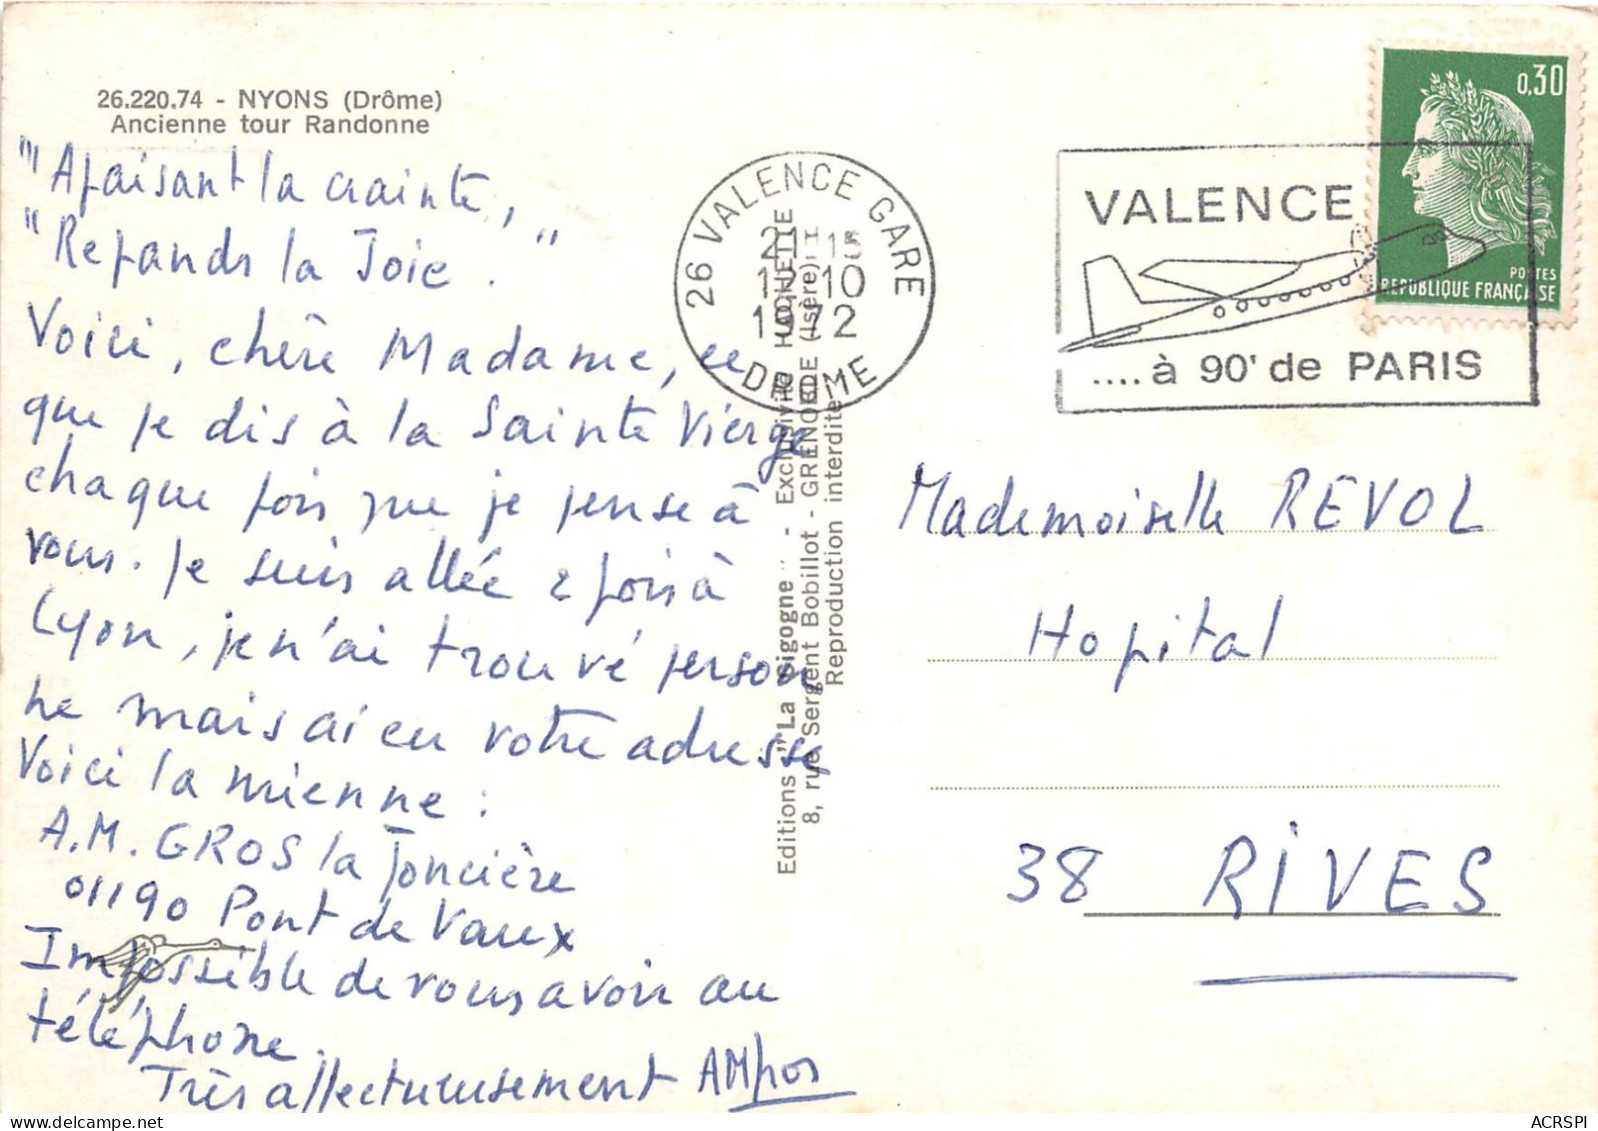 26.220.74 - NYONS (Drôme)
Ancienne tour Randonne
"Apaisant la crainte,"
"Répands la Joie."
Voici, chère Madame, ce
que je dis à la Sainte Vierge
chaque fois que je pense à
vous. Je suis allée 2 fois à
Lyon, je n'ai trouvé person
ne mais ai eu votre adresse
Voici la mienne :
A.M. GROS la Joncière
01190 Pont de Vaux
Impossible de vous avoir au
téléphone.
Très affectueusement AMGros
Editions "La Sigogne" - Exclusivité HACHETTE
8, rue Sergent Bobillot - GRENOBLE (Isère)
Reproduction interdite
26 VALENCE GARE
21H15
12-10
1972
DROME
VALENCE
.... à 90' de PARIS
0,30
POSTES
REPUBLIQUE FRANÇAISE
Mademoiselle REVOL
Hopital
38 RIVES
ACRSPI